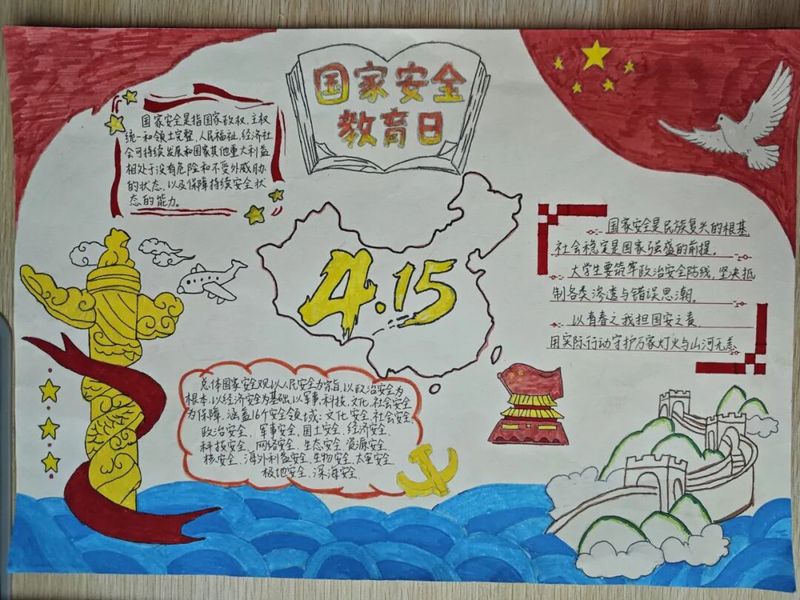 国家安全
教育日
国家安全是指国家政权、主权
统一和领土完整、人民福祉、经济社
会可持续发展和国家其他重大利益
相处于没有危险和不受外威胁
的状态,以及保障持续安全状
态的能力。
4.15
国家安全是民族复兴的根基
社会稳定是国家强盛的前提,
大学生要筑牢政治安全防线,坚决抵
制各类渗透与错误思潮,
以青春之我担国安之责,
用实际行动守护万家灯火与山河无恙
总体国家安全观,以人民安全为宗旨,以政治安全为
根本,以经济安全为基础,以军事、科技、文化、社会安全
为保障,涵盖16个安全领域:文化安全、社会安全
政治安全、军事安全、国土安全、经济安全、
科技安全、网络安全、生态安全、资源安全、
核安全、海外利益安全、生物安全、太空安全、
极地安全、深海安全